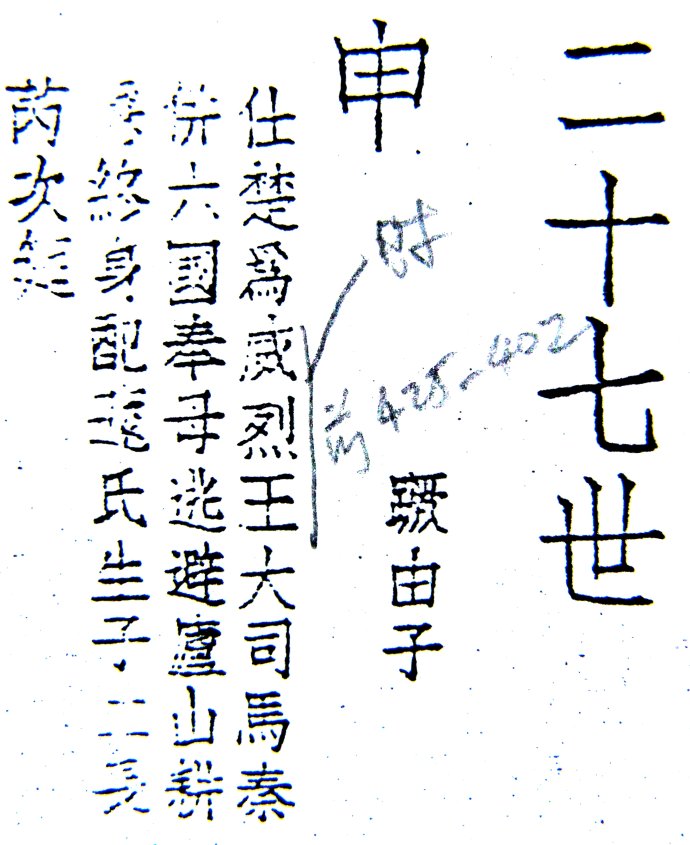 二十七世
申
䝙由子
时
前425-402
仕楚爲威烈王大司馬秦
併六國奉母逃避廬山耕
終身配氏生子二長
芮次